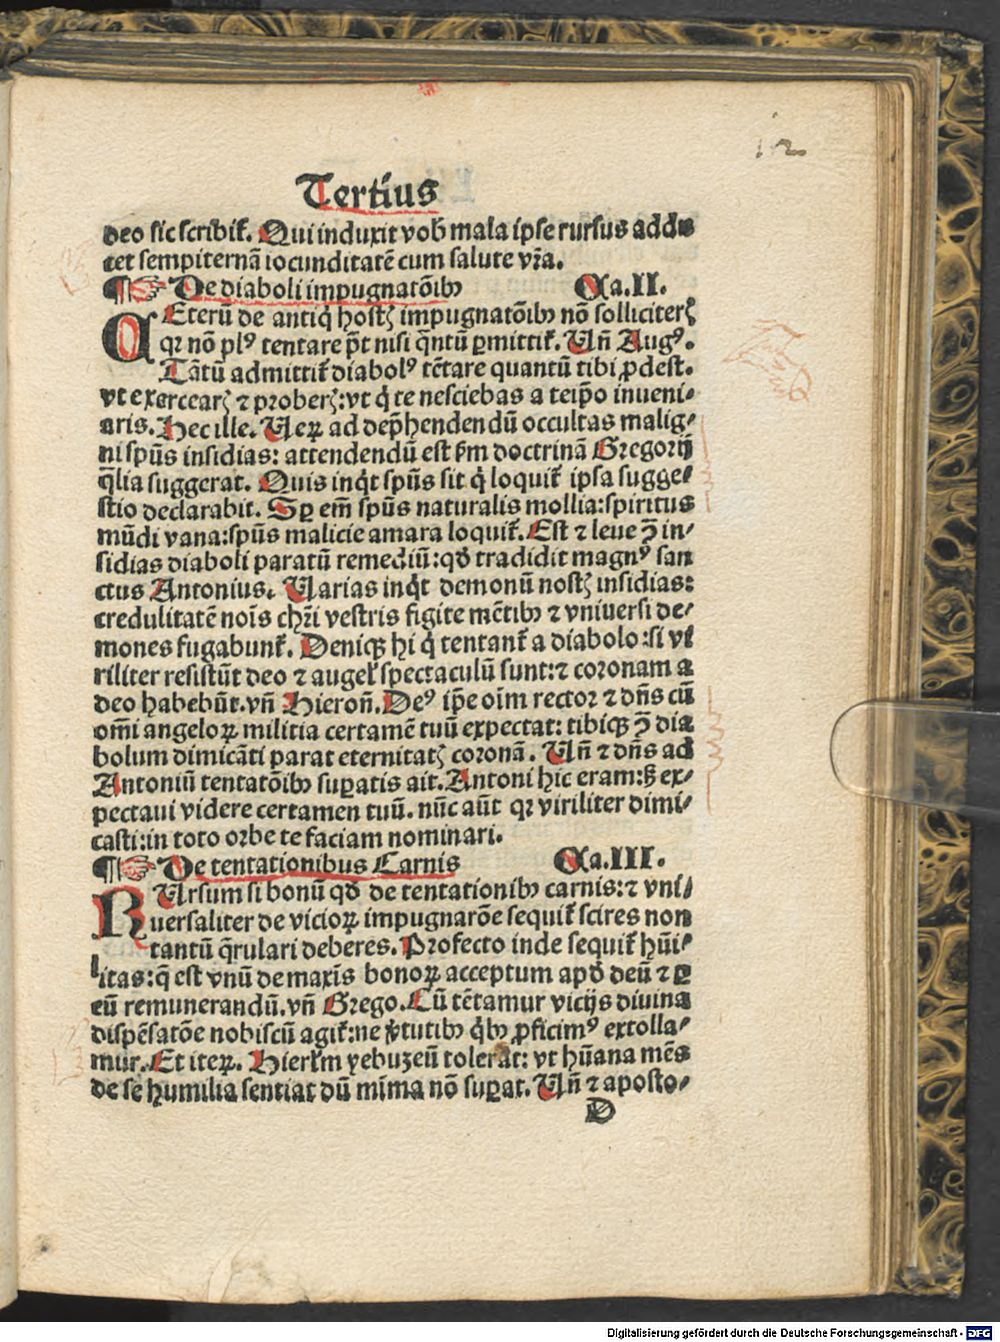 12
Tertius
deo sic scribit᷑. Qui induxit vob̄ mala ipse rursus addu
cet sempiternā iocunditatē cum salute vr̄a.
¶ De diaboli impugnatōib⁹ Ca.II.
CEterū de antiq̇ hostꝭ impugnatōib⁹ nō solliciterꝭ
qꝛ nō pl⁹ tentare pōt nisi q̄ntū ꝑmittit᷑. Vn̄ Aug⁹.
Tātū admittit᷑ diabol⁹ tētare quantū tibi ꝓdest.
vt exercearꝭ ⁊ proberꝭ: vt q̇ te nesciebas a teip̄o inueni-
aris. Hec ille. Veꝝ ad dep̄hendendū occultas malig-
ni spūs insidias: attendendū est ẜm doctrinā Gregorij
q̄lia suggerat. Quis inq̇t spūs sit q̇ loquit᷑ ipsa sugge-
stio declarabit. Sꝑ em̄ spūs naturalis mollia: spiritus
mūdi vana: spūs malicie amara loquit᷑. Est ⁊ leue ꝯ̄ in-
sidias diaboli paratū remediū: qđ tradidit magn⁹ san
ctus Antonius. Varias inq̇t demonū nostꝭ insidias:
credulitatē noīs chr̄i vestris figite mētib⁹ ⁊ vniuersi de-
mones fugabunt᷑. Deniqꝫ hi q̇ tentant᷑ a diabolo: si vi
riliter resistūt deo ⁊ angel᷑ spectaculū sunt: ⁊ coronam a
deo habebūt. vn̄ Hieron̄. De⁹ ip̄e oīm rector ⁊ dn̄s cū
om̄i angeloꝝ militia certamē tuū expectat: tibiqꝫ ꝯ̄ dia
bolum dimicāti parat eternitatꝭ coronā. Vn̄ ⁊ dn̄s ad
Antoniū tentatōib⁹ suꝑatis ait. Antoni hic eram: sꝫ ex-
pectaui videre certamen tuū. nūc aūt qꝛ viriliter dimi-
casti: in toto orbe te faciam nominari.
¶ De tentationibus Carnis Ca.III.
RVrsum si bonū qđ de tentationib⁹ carnis: ⁊ vni-
uersaliter de vicioꝝ impugnatōe sequit᷑ scires non
tantū q̄rulari deberes. Profecto inde sequit᷑ hūi-
litas: q̄ est vnū de maxīs bonoꝝ acceptum apđ deū ⁊ ꝑ
eū remunerandū. vn̄ Grego. Cū tētamur vicijs diuina
dispēsatōe nobiscū agit᷑: ne v̇tutib⁹ q̇b⁹ ꝓficim⁹ extolla-
mur. Et iteꝝ. Hierl᷑m yebuzeū tolerat: vt hūana mēs
de se humilia sentiat dū mīma nō suꝑat. Vn̄ ⁊ aposto-
D
Digitalisierung gefördert durch die Deutsche Forschungsgemeinschaft - DFG